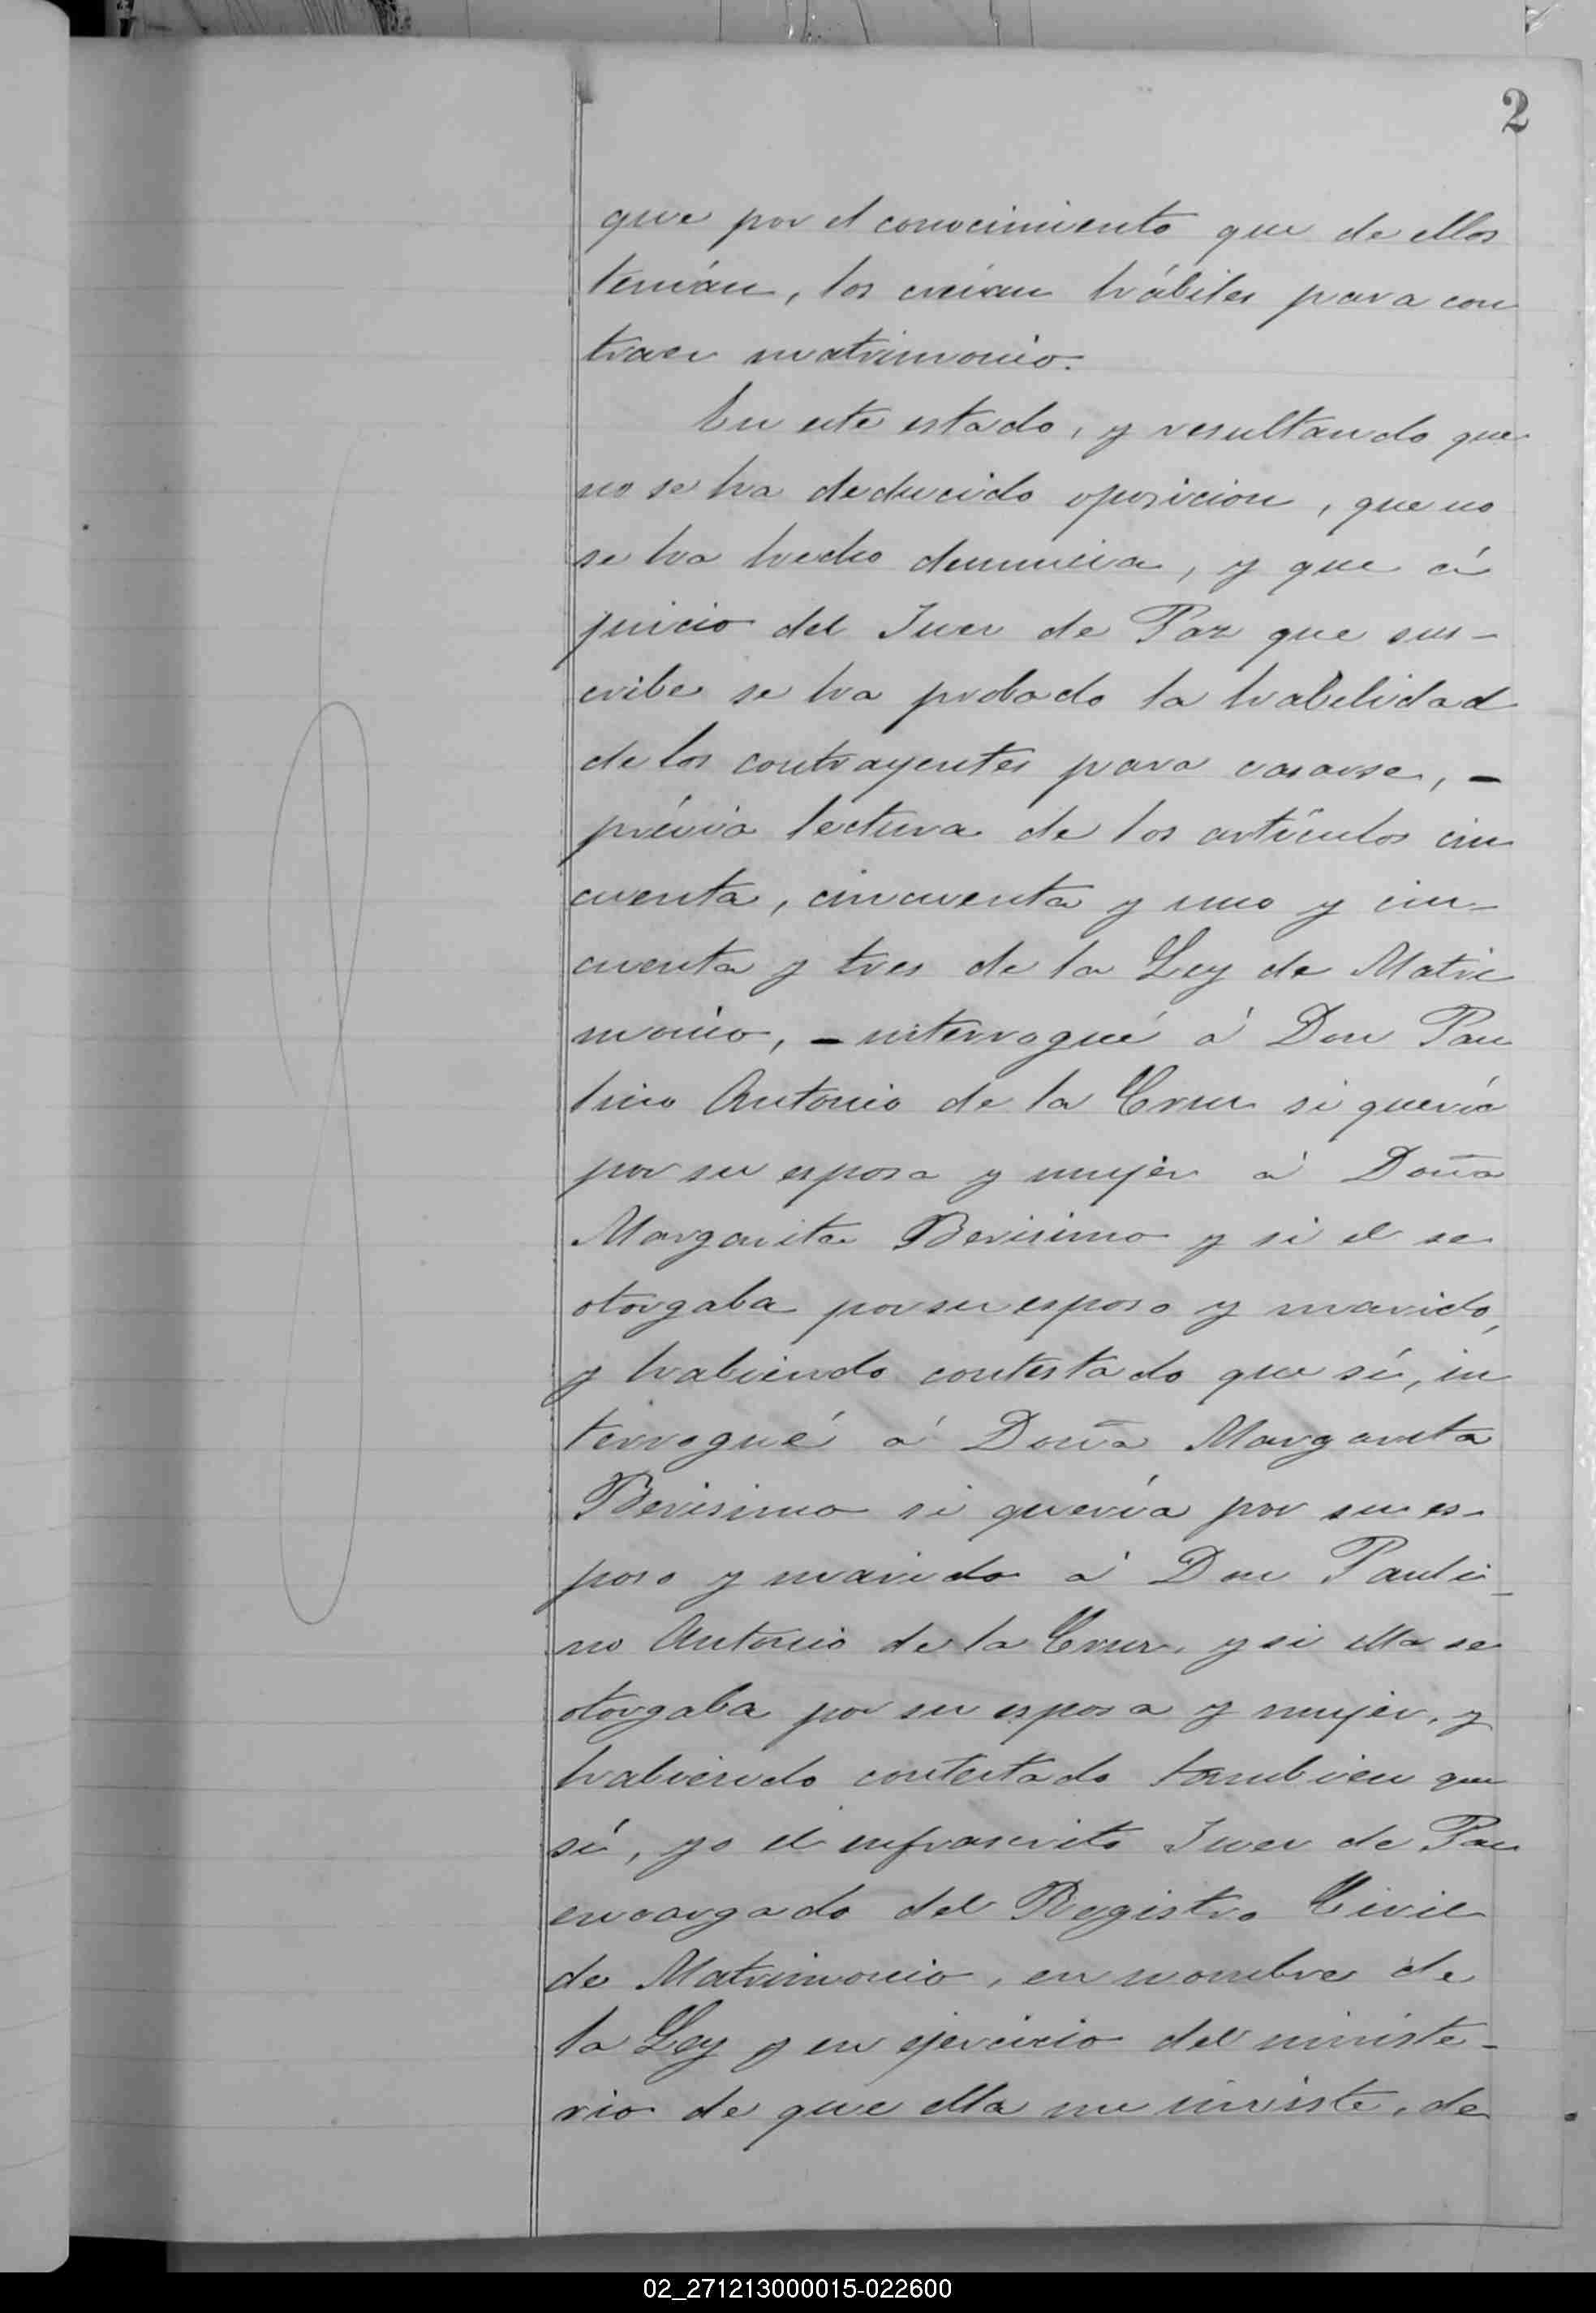 2
que por el conocimiento que de ellos
tenían, los creían hábiles para con
traer matrimonio.
En este estado, y resultando que
no se ha deducido oposicion, que no
se ha hecho denuncia, y que á
juicio del Juez de Paz que sus-
cribe se ha probado la habilidad
de los contrayentes para casarse, -
prévia lectura de los artículos cin
cuenta, cincuenta y uno y cin-
cuenta y tres de la Ley de Matri
monio, - interrogué á Don Pau
lino Antonio de la Cruz si quería
por su esposa y mujer á Doña
Margarita Berisimo y si el se
otorgaba por su esposo y marido,
y habiendo contestado que sí, in
terrogué á Doña Margarita
Berisimo si quería por su es-
poso y marido á Don Pauli-
no Antonio de la Cruz, y si ella se
otorgaba por su esposa y mujer, y
habiendo contestado tambien que
sí, yo el infrascrito Juez de Paz
encargado del Registro Civil
de Matrimonio, en nombre de
la Ley y en ejercicio del ministe-
rio de que ella me inviste, de
02_271213000015-022600